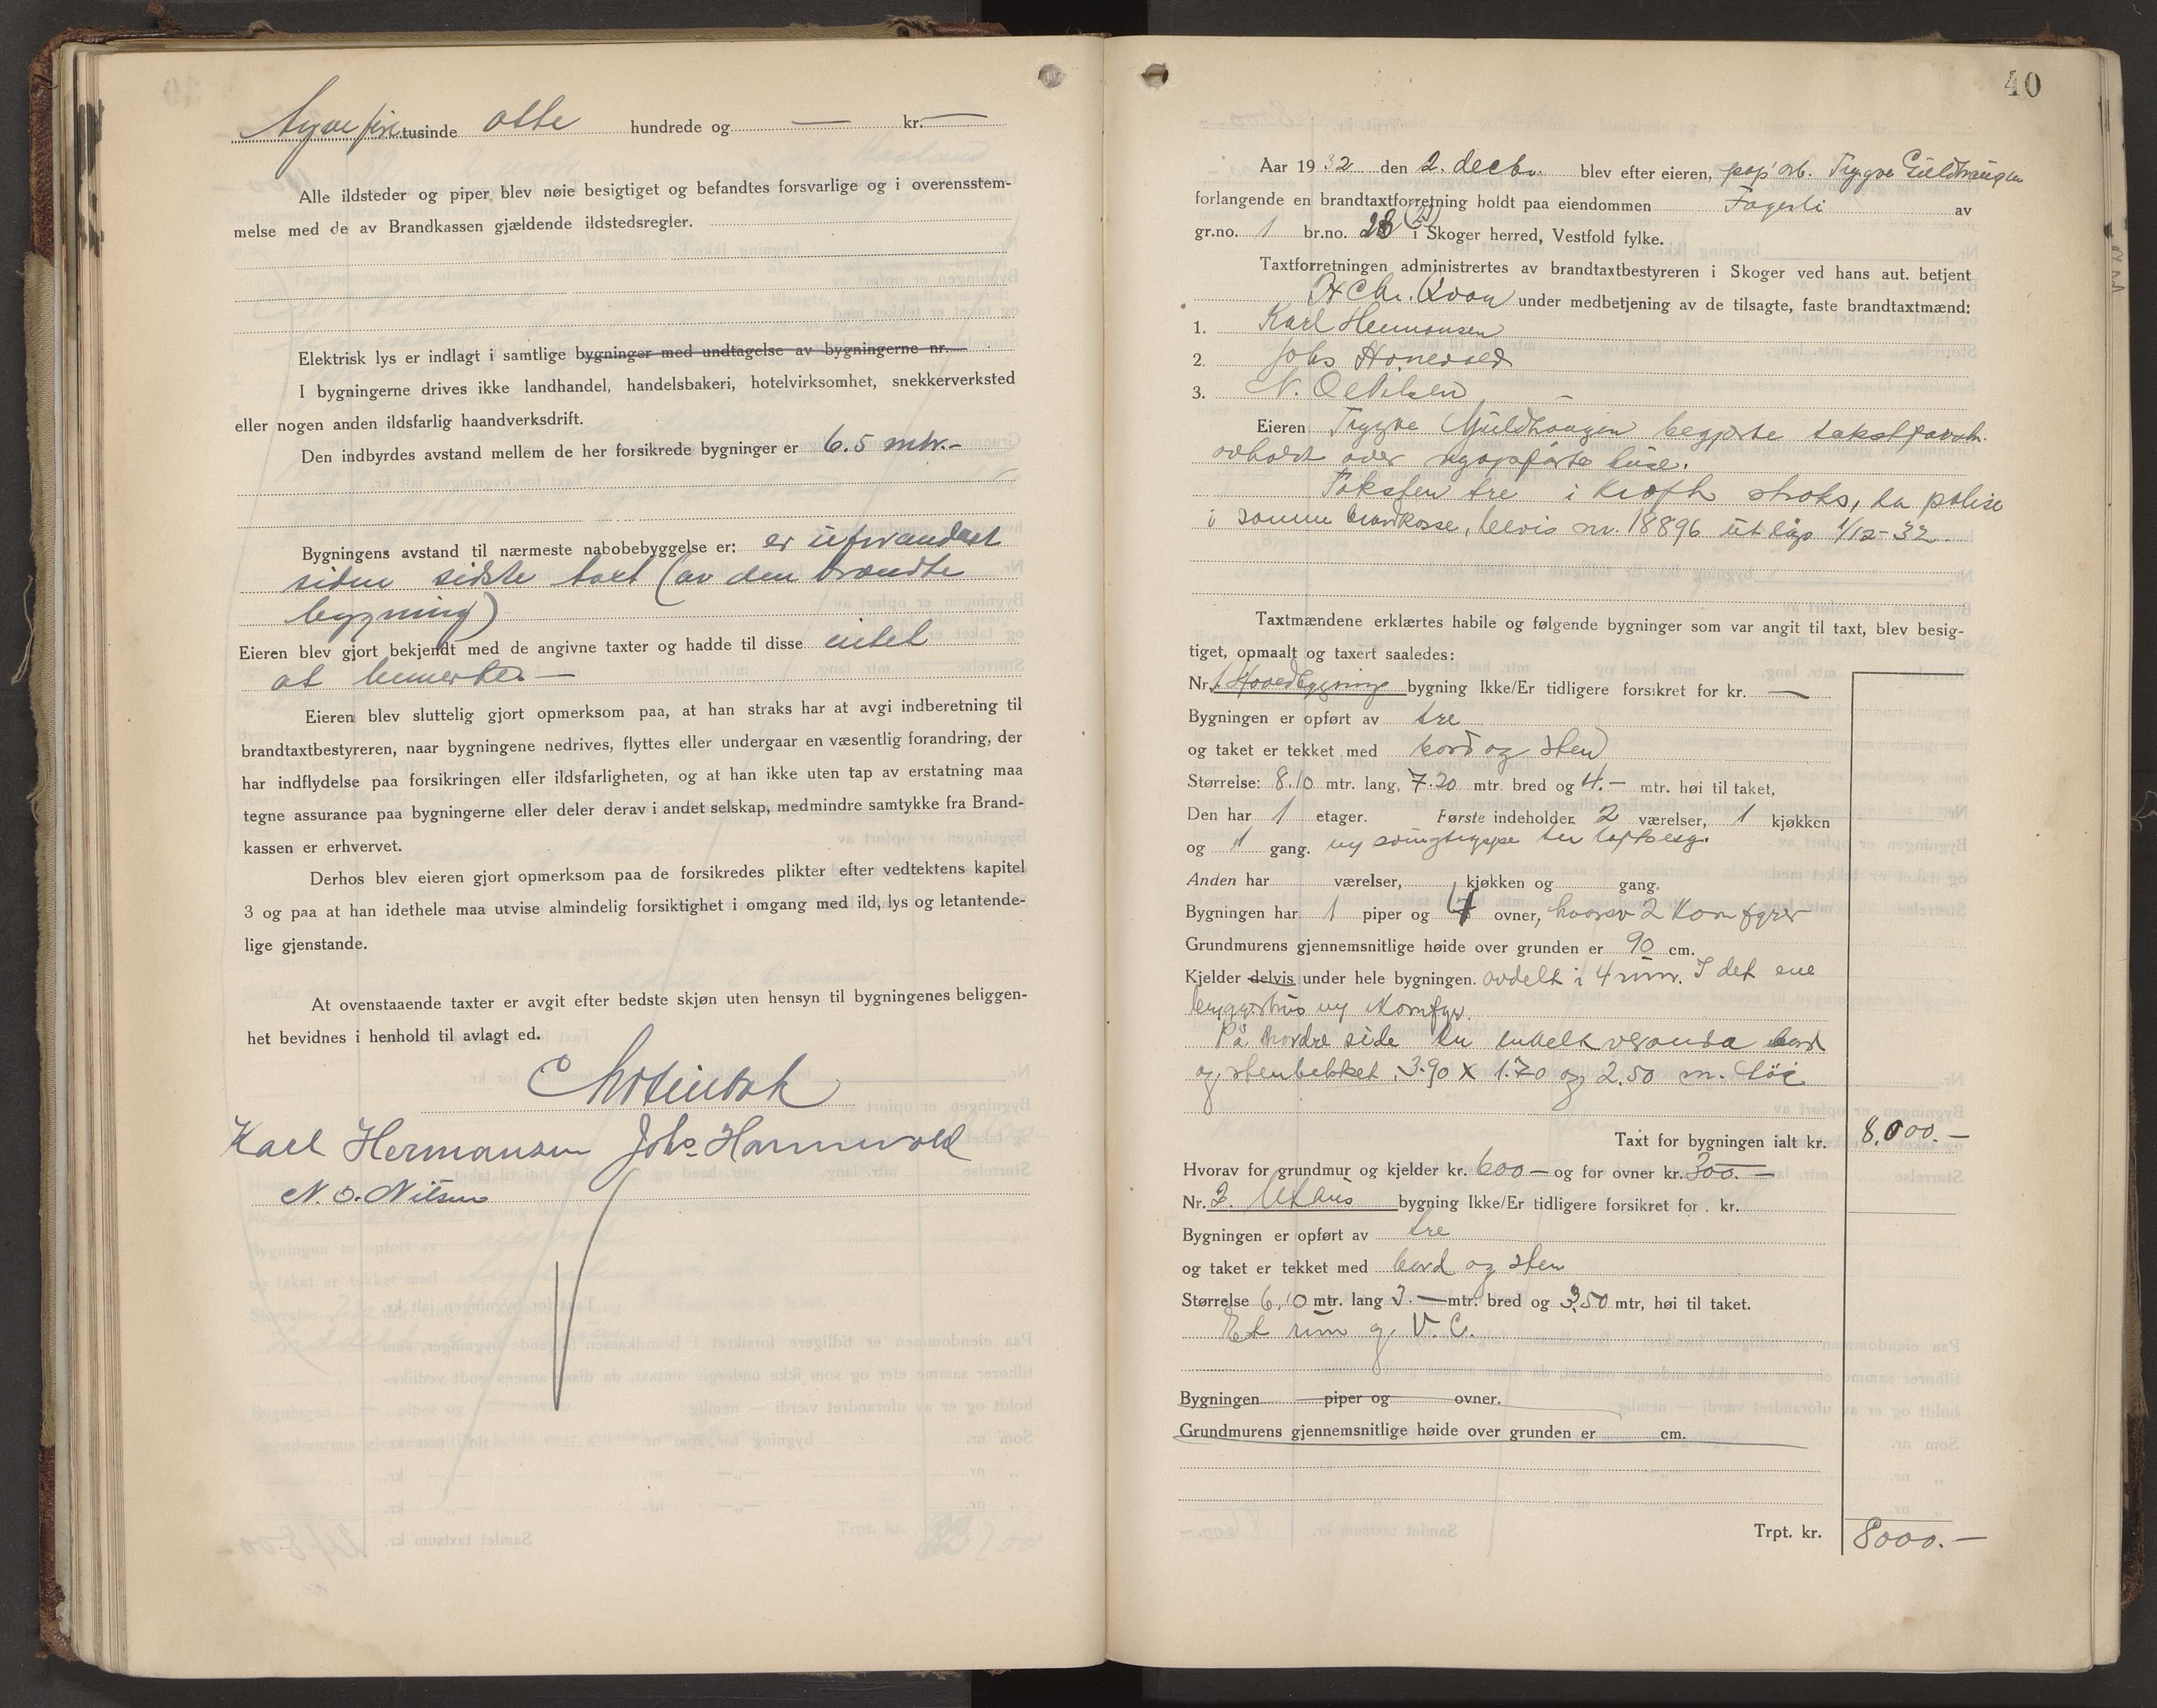 Tyvefire tusinde otte hundrede og — kr. —
Alle ildsteder og piper blev nøie besigtiget og befandtes forsvarlige og i overensstem-
melse med de av Brandkassen gjældende ildstedsregler.
Elektrisk lys er indlagt i samtlige bygninger med undtagelse av bygningerne nr.
I bygningerne drives ikke landhandel, handelsbakeri, hotelvirksomhet, snekkerverksted
eller nogen anden ildsfarlig haandverksdrift.
Den indbyrdes avstand mellem de her forsikrede bygninger er 6.5 mtr.-
Bygningens avstand til nærmeste nabobebyggelse er: er uforandret
siden sidste taxt (av den brændte
bygning)
Eieren blev gjort bekjendt med de angivne taxter og hadde til disse intet
at bemerke. —
Eieren blev sluttelig gjort opmerksom paa, at han straks har at avgi indberetning til
brandtaxtbestyreren, naar bygningene nedrives, flyttes eller undergaar en væsentlig forandring, der
har indflydelse paa forsikringen eller ildsfarligheten, og at han ikke uten tap av erstatning maa
tegne assurance paa bygningerne eller deler derav i andet selskap, medmindre samtykke fra Brand-
kassen er erhvervet.
Derhos blev eieren gjort opmerksom paa de forsikredes plikter efter vedtektens kapitel
3 og paa at han idethele maa utvise almindelig forsiktighet i omgang med ild, lys og letantende-
lige gjenstande.
At ovenstaaende taxter er avgit efter bedste skjøn uten hensyn til bygningenes beliggen-
het bevidnes i henhold til avlagt ed.
Karl Hermansen Johs Hannevold
N. O. Nilsen
40
Aar 1932 den 2. decbr. blev efter eieren, pap. arb. Trygve Guldhaugen
forlangende en brandtaxtforretning holdt paa eiendommen Fagerli av
gr.no. 1 br.no. 28 i Skoger herred, Vestfold fylke.
Taxtforretningen administrertes av brandtaxtbestyreren i Skoger ved hans aut. betjent
H Chr. under medbetjening av de tilsagte, faste brandtaxtmænd:
1. Karl Hermansen
2. Johs Hannevold
3. N. O. Nilsen —
Eieren Trygve Guldhaugen begjærte takstforretn.
avholdt over nyopførte huse.
Taksten tre i kraft straks, da polise
i samme brandkasse, bevis nr. 18896 utløp 1/12-32
Taxtmændene erklærtes habile og følgende bygninger som var angit til taxt, blev besig-
tiget, opmaalt og taxert saaledes:
Nr. 1 Hovedbygning bygning Ikke/Er tidligere forsikret for kr. —
Bygningen er opført av tre
og taket er tekket med bord og sten
Størrelse: 8,10 mtr. lang, 7.20 mtr. bred og 4.— mtr. høi til taket,
Den har 1 etager. Første indeholder 2 værelser, 1 kjøkken
og 1 gang. ny svingtrappe til loftsetg.
Anden har værelser, kjøkken og gang.
Bygningen har 1 piper og 4 ovner, hvorav 2 komfyrer
Grundmurens gjennemsnitlige høide over grunden er 90 cm.
Kjelder delvis under hele bygningen. avdelt i 4 rum. I det ene
bryggerhus ny komfyr.
På nordre side en enkelt veranda bord
og stentekket 3.90 x 1.70 og 2.50 m. høi
Taxt for bygningen ialt kr. 8,000.—
Hvorav for grundmur og kjelder kr. 600 — og for ovner kr. 300. —
Nr. 2. Uthus bygning Ikke/Er tidligere forsikret for kr.
Bygningen er opført av tre
og taket er tekket med bord og sten
Størrelse 6,10 mtr. lang 3.— mtr. bred og 3,50 mtr, høi til taket.
Et rum og V. C.
Bygningen piper og ovner.
Grundmurens gjennemsnitlige høide over grunden er cm.
Trpt. kr. 8000.—